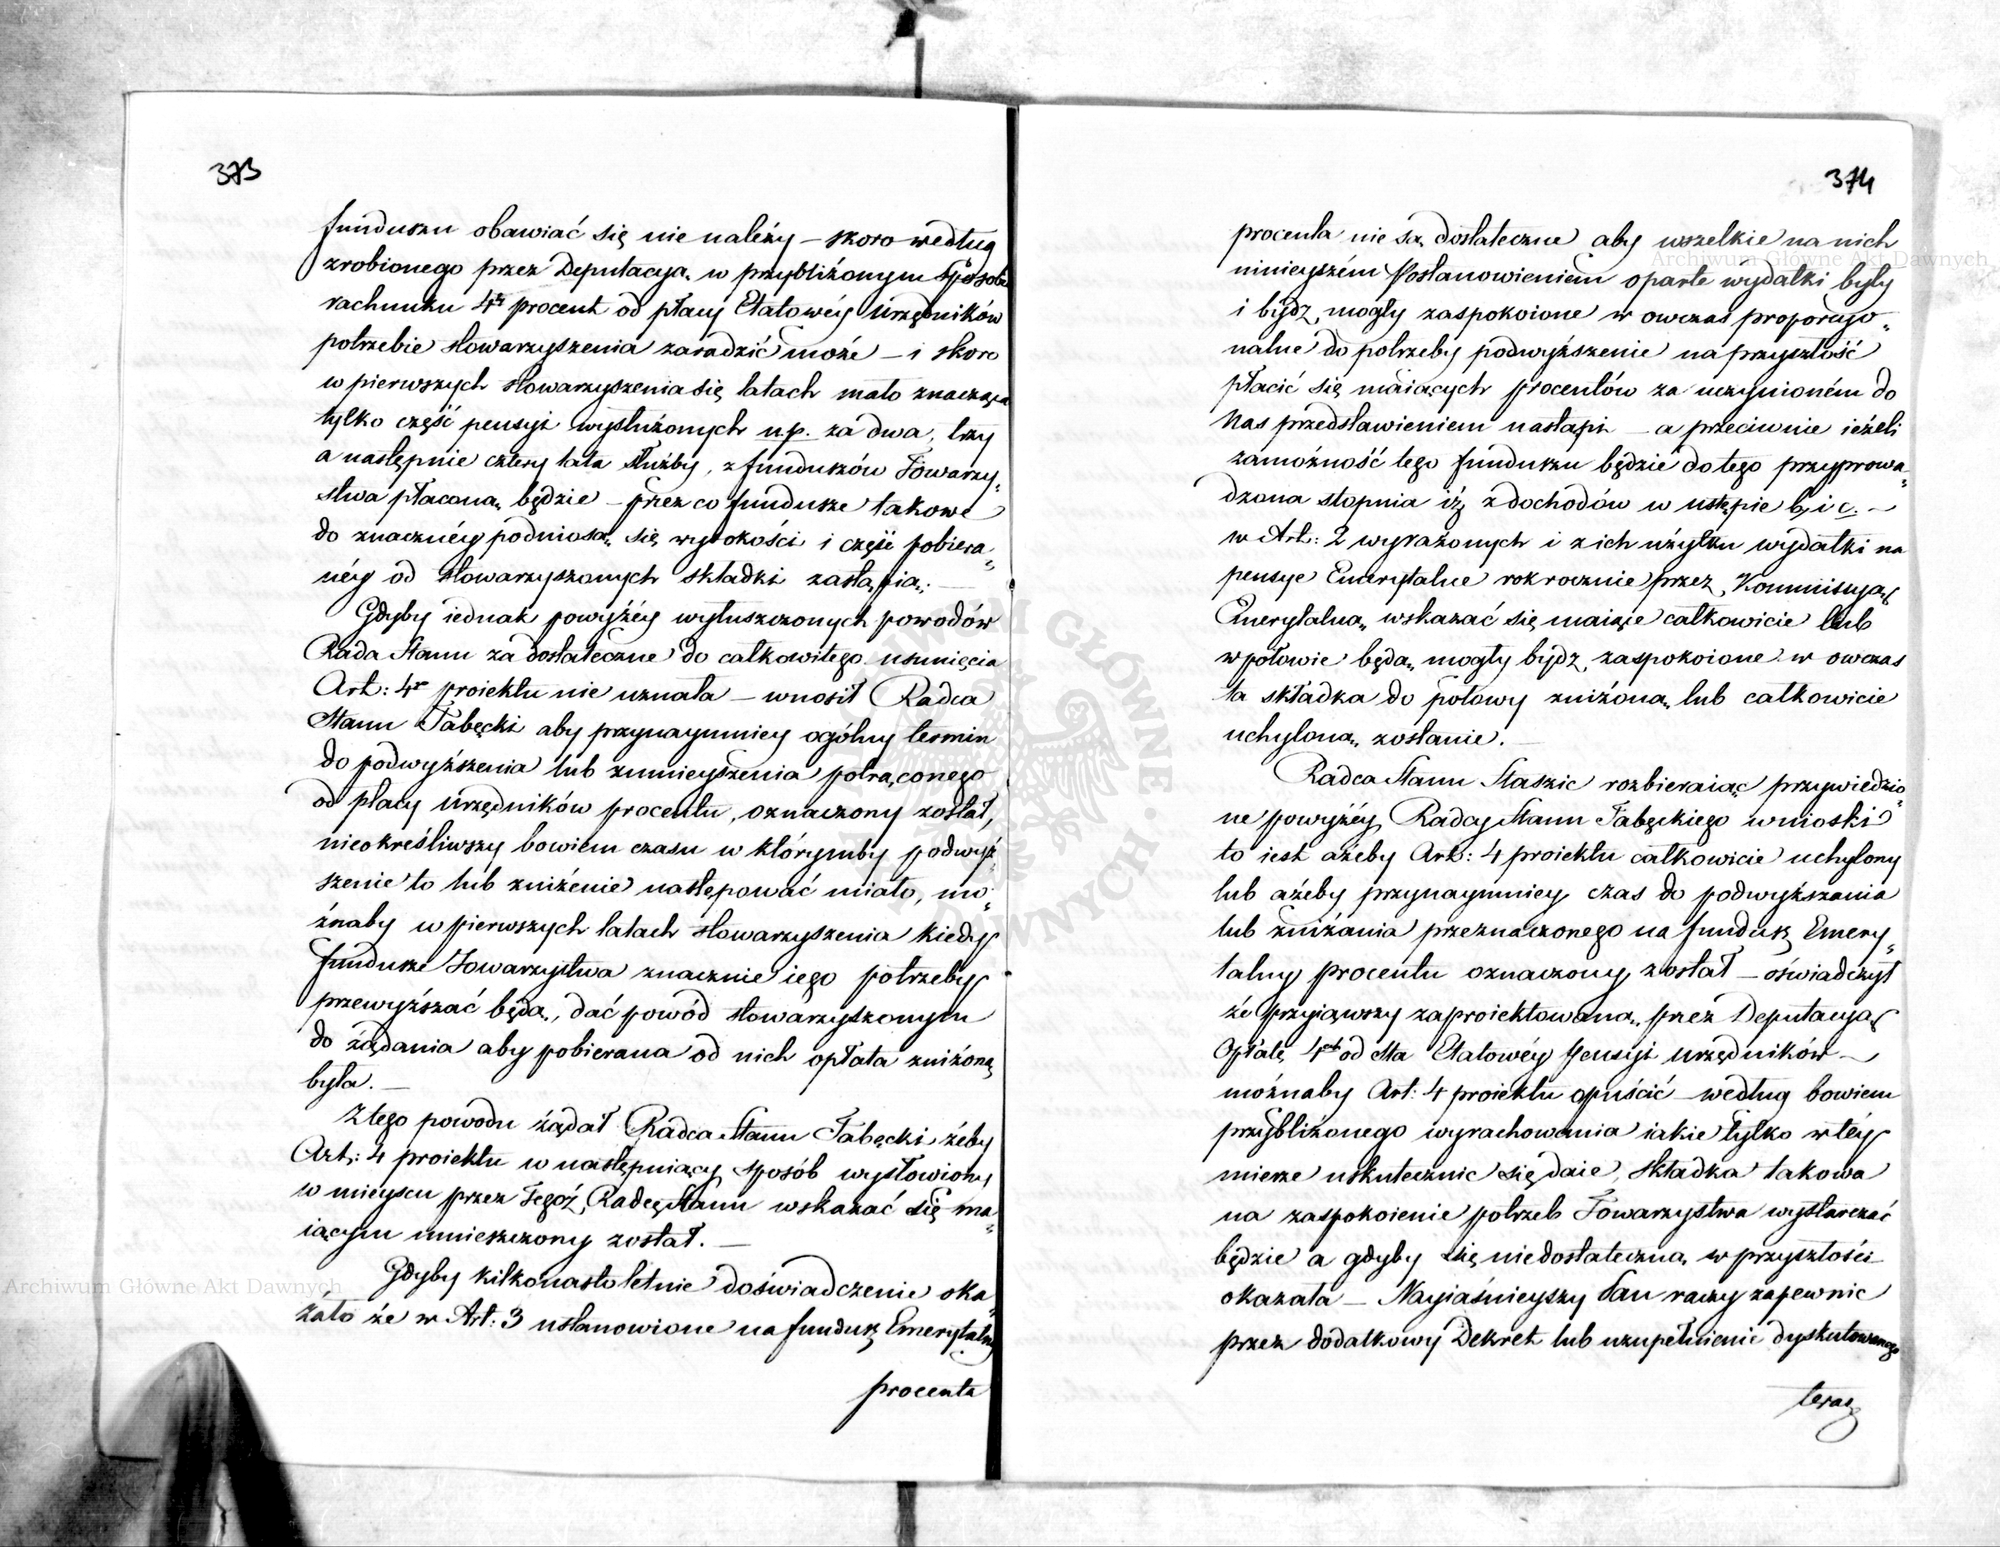 373
funduszu obawiać się nie należy – skoro według
zrobionego przez Deputacyą w przybliżonym sposobie
rachunku 4ry procent od płacy Etatowéy Urzędników
potrzebie stowarzyszenia zaradzić może – i skoro
w pierwszych stowarzyszenia się latach mało znacząca
tylko część pensyi wysłużonych n.p. za dwa, trzy
a następnie cztery lata służby, z funduszów Towarzy„
stwa płaconą będzie – przez co fundusze takowe
do znacznéy podniosą się wysokości i część pobiera„
néy od stowarzyszonych składki zastąpią. –
Gdyby iednak powyżéy wyłuszczonych powodów
Rada Stanu za dostateczne do całkowitego usunięcia
Art: 4º proiektu nie uznała – wnosił Radca
Stanu Tabęcki aby przynaymniey ogólny termin
do podwyższenia lub zmnieyszenia potrąconego
od płacy Urzędników procentu, oznaczony został,
nieokreśliwszy bowiem czasu w którymby podwyż„
szenie to lub zniżenie następować miało, mo„
żnaby w pierwszych latach stowarzyszenia kiedy
fundusze Towarzystwa znacznie iego potrzeby
przewyższać będą, dać powód stowarzyszonym
do żądania aby pobierana od nich opłata zniżoną
była. –
Z tego powodu żądał Radca Stanu Tabęcki żeby
Art: 4 proiektu w następuiący sposób wysłowiony
w mieyscu przez Tegoż Radcę Stanu wskazać się ma„
iącym umieszczony został. –
Gdyby kilkonastoletnie doświadczenie oka„
zało że w Art: 3 ustanowione na fundusz Emerytalny
procenta
374
procenta nie są dostateczne aby wszelkie na nich
ninieyszém Postanowieniem oparte wydatki były
i bydz mogły zaspokoione w owczas proporcyo„
nalne do potrzeby podwyższenie na przyszłość
płacić się maiących procentów za uczynioném do
Nas przedstawieniem nastąpi – a przeciwnie ieżeli
zamożność tego funduszu będzie do tego przyprowa„
dzona stopnia iż z dochodów w ustępie b, i c. –
w Art: 2 wyrażonych i z ich użytku wydatki na
pensye Emerytalne rok rocznie przez Kommissyą
Emerytalną wskazać się maiące całkowicie lub
w połowie będą mogły bydz zaspokoione w owczas
ta składka do połowy zniżoną lub całkowicie
uchyloną zostanie. –
Radca Stanu Staszic rozbieraiąc przywiedzio„
ne powyżéy Radcy Stanu Tabęckiego wnioski
to iest ażeby Art: 4 proiektu całkowicie uchylony
lub ażeby przynaymniey czas do podwyższania
lub zniżania przeznaczonego na fundusz Emery„
talny procentu oznaczony został – oświadczył
że przyiąwszy zaproiektowaną przez Deputacyą
opłatę 4ch od sta Etatowéy pensyi urzędników –
możnaby Art: 4 proiektu opuścić – według bowiem
przybliżonego wyrachowania iakie tylko w téy
mierze uskutecznić się daie, składka takowa
na zaspokoienie potrzeb Towarzystwa wystarczać
będzie a gdyby się niedostateczną w przyszłości
okazała – Nayiaśnieyszy Pan raczy zapewnie
przez dodatkowy Dekret lub uzupełnienie dyskutowanego
teraz
Archiwum Główne Akt Dawnych
Archiwum Główne Akt Dawnych